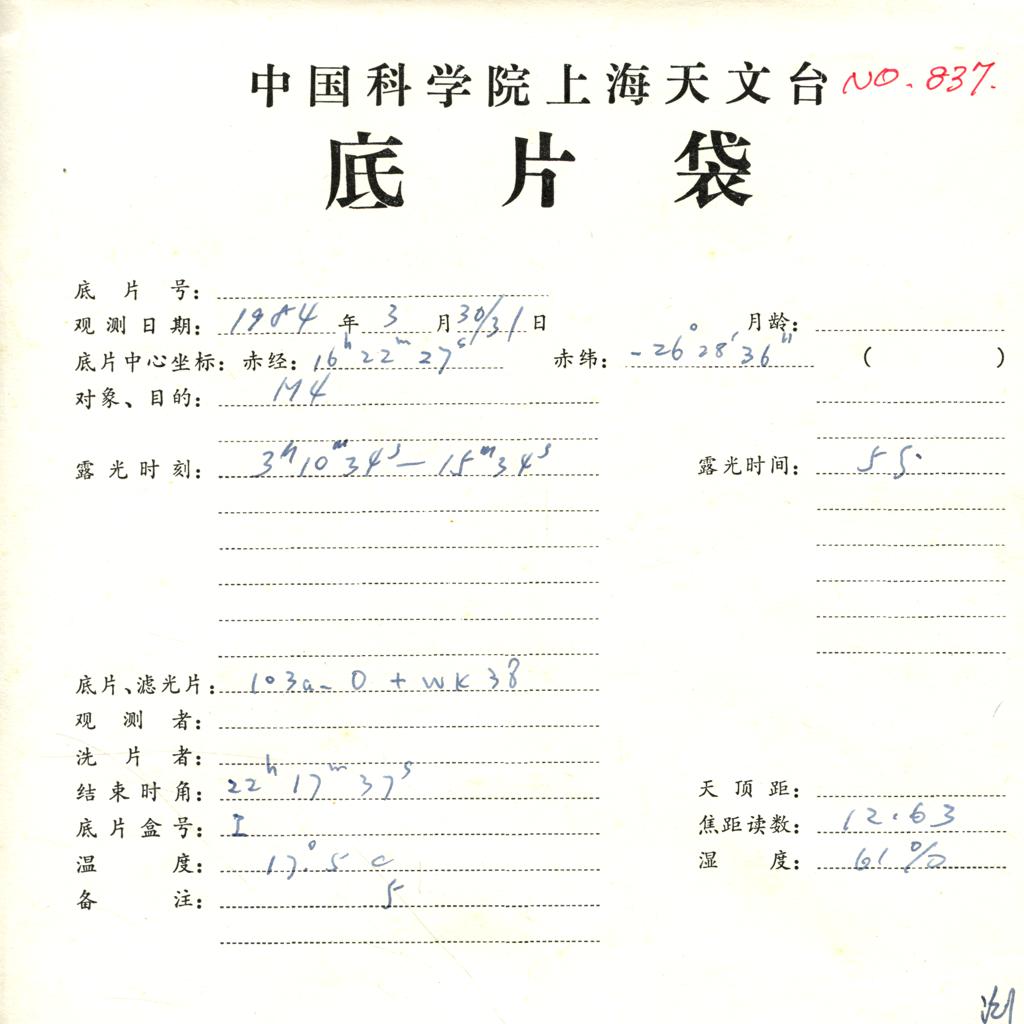 中国科学院上海天文台 NO. 837.
底片袋
底片号:
观测日期: 1984年3月30/31日 月龄:
底片中心坐标: 赤经: 16h22m27s 赤纬: -26°28′36″ ( )
对象、目的: M4
露光时刻: 3h10m34s—15m34s 露光时间:
底片、滤光片: 103a-O + WK38
观测者:
洗片者:
结束时角: 22h17m37s 天顶距:
底片盒号: I 焦距读数: 12.63
温度: 17°.5 C 湿度: 61%
备注: 5